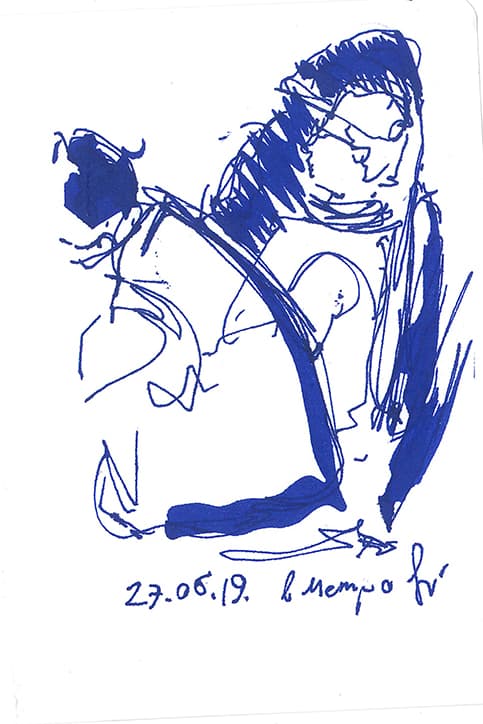 27.06.19. в метро